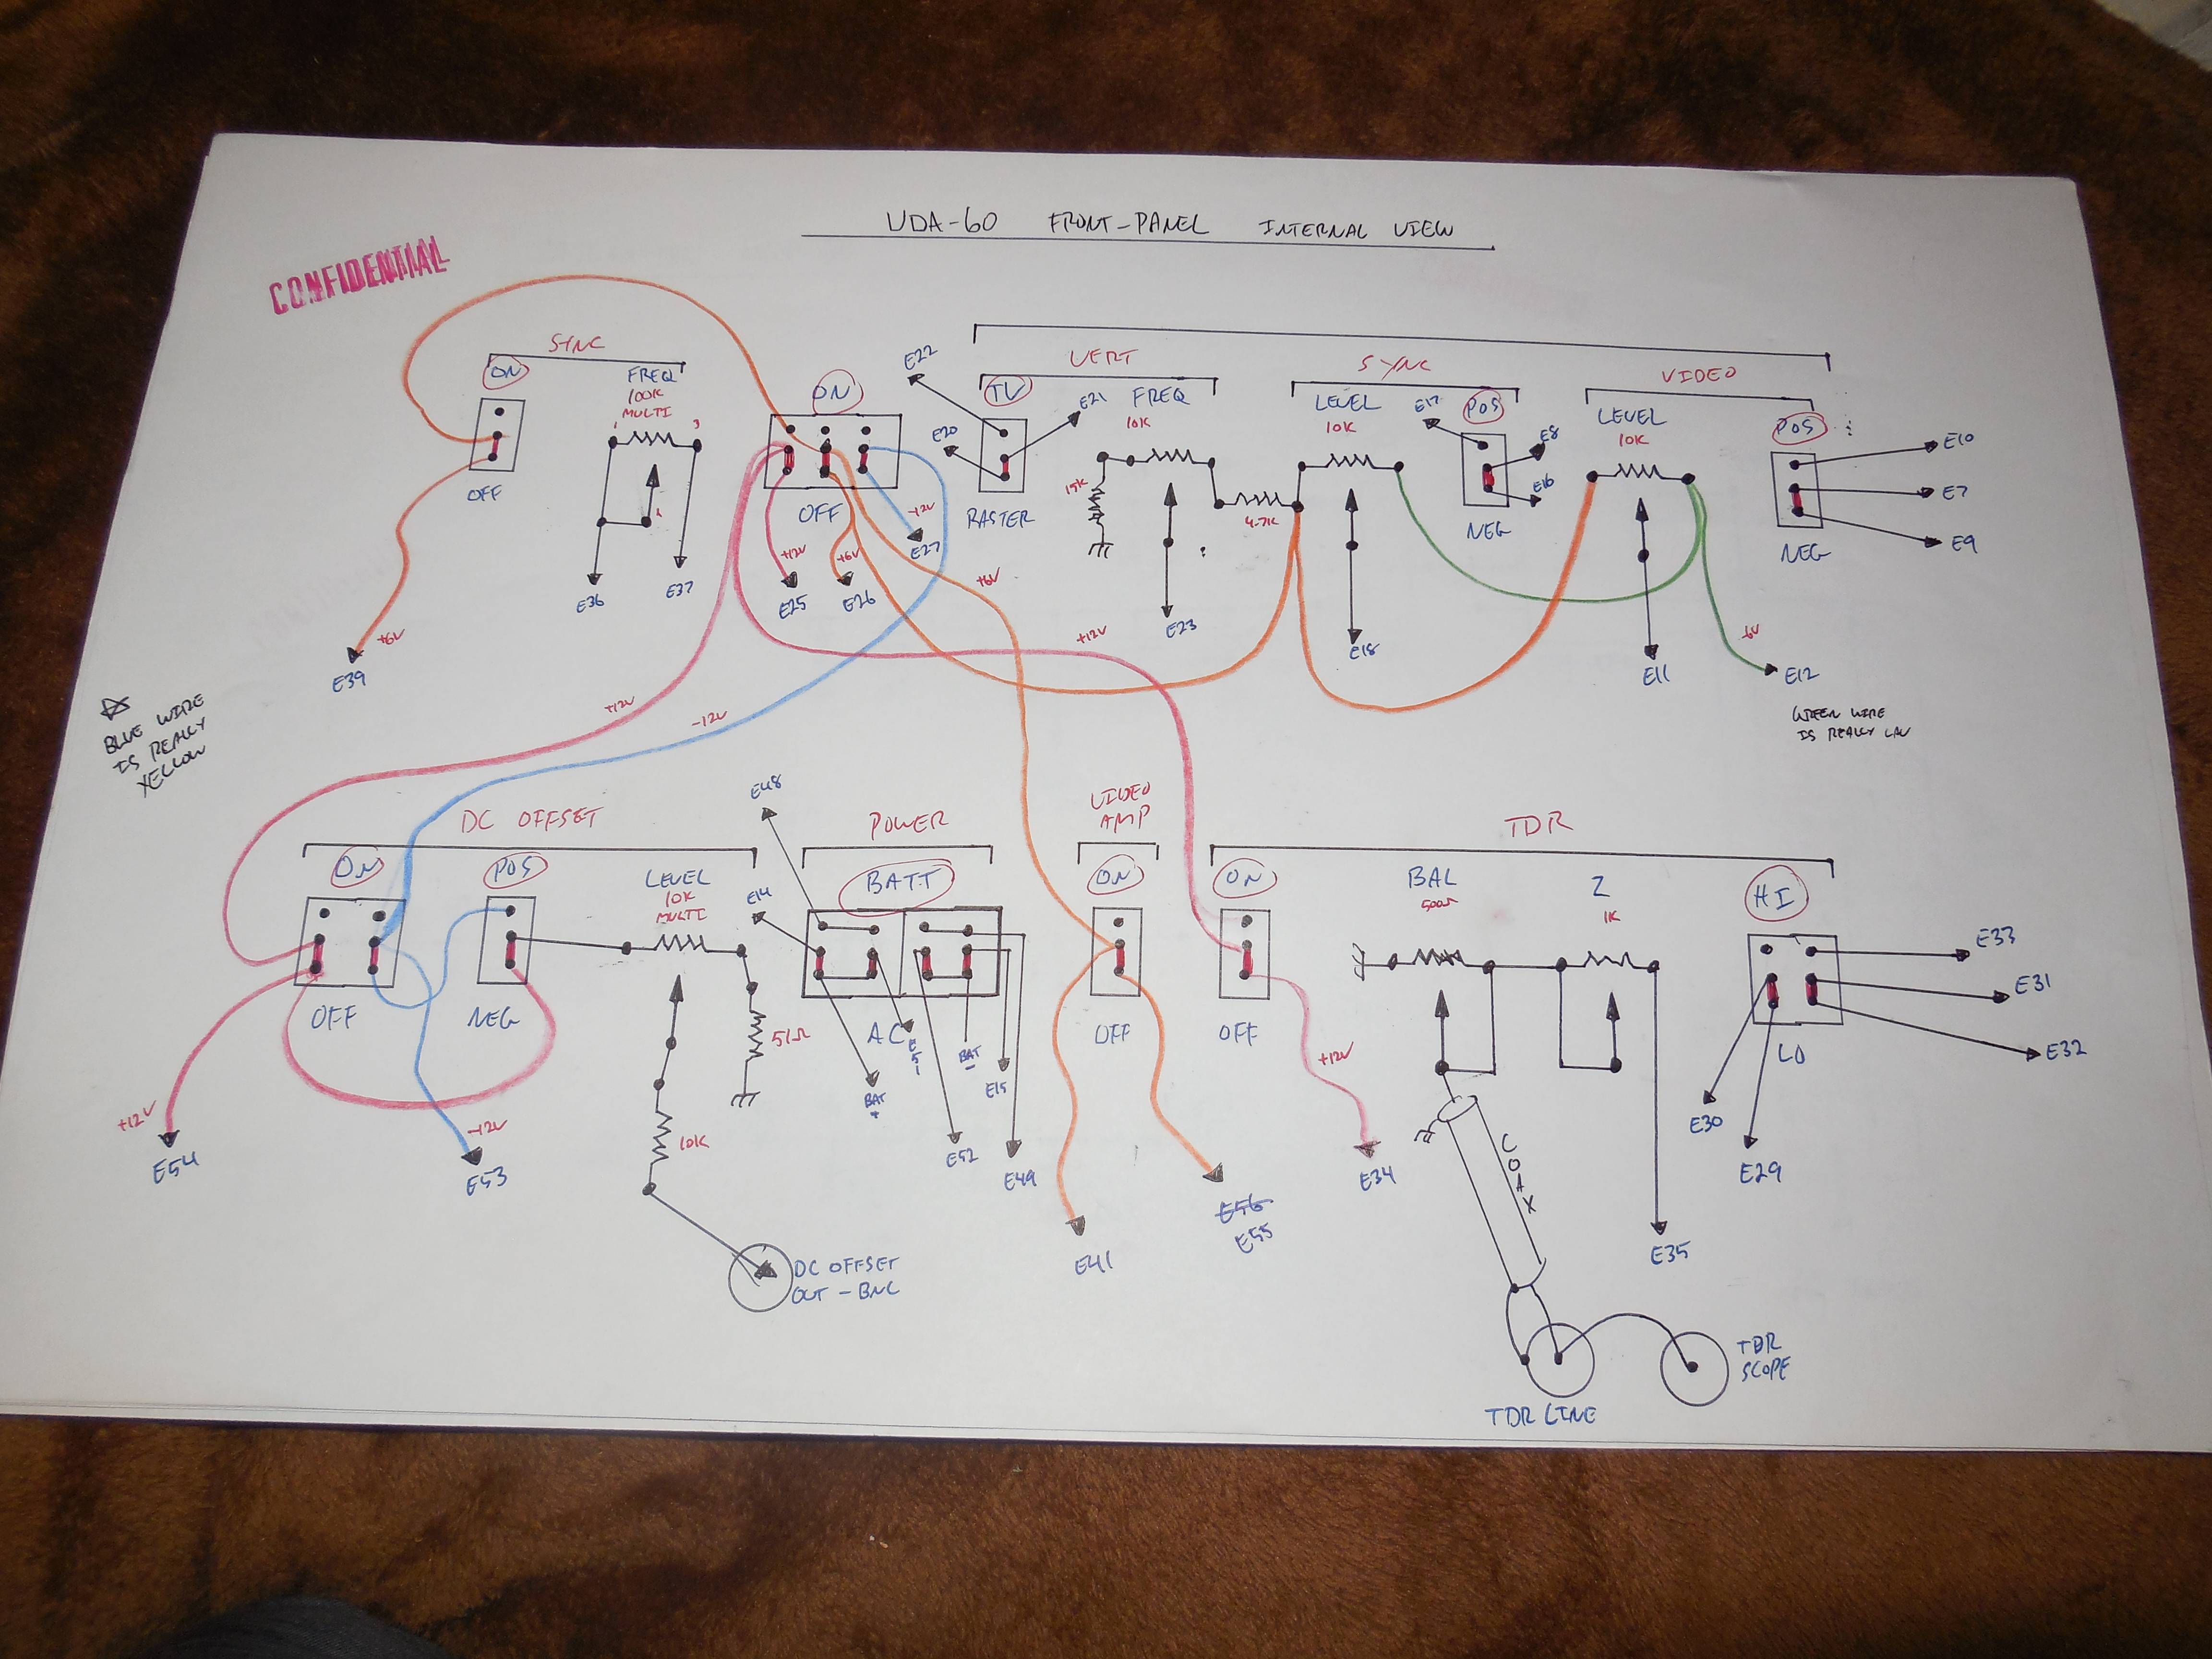 VDA-60 FRONT-PANEL INTERNAL VIEW
CONFIDENTIAL
SYNC
ON
FREQ
100K
MULTI
1
3
2
OFF
E36
E37
+6V
E39
ON
OFF
+12V
E25
+6V
E26
-12V
E27
E22
VERT
TV
E21
E20
RASTER
FREQ
10K
15K
4.7K
E23
SYNC
LEVEL
10K
E17
POS
E8
E16
NEG
E18
VIDEO
LEVEL
10K
POS
E10
E7
E9
NEG
E11
-6V
E12
GREEN WIRE
IS REALLY LAV
+6V
+12V
+12V
-12V
☆
BLUE WIRE
IS REALLY
YELLOW
DC OFFSET
ON
OFF
POS
NEG
LEVEL
10K
MULTI
51Ω
10K
+12V
E54
-12V
E53
DC OFFSET
OUT - BNC
E48
E14
POWER
BATT
AC
E51
BAT
+
BAT
-
E15
E52
E49
VIDEO
AMP
ON
OFF
E41
E56
E55
TDR
ON
OFF
+12V
E34
BAL
500Ω
Z
1K
HI
LO
E33
E31
E32
E30
E29
E35
COAX
TDR LINE
TDR
SCOPE